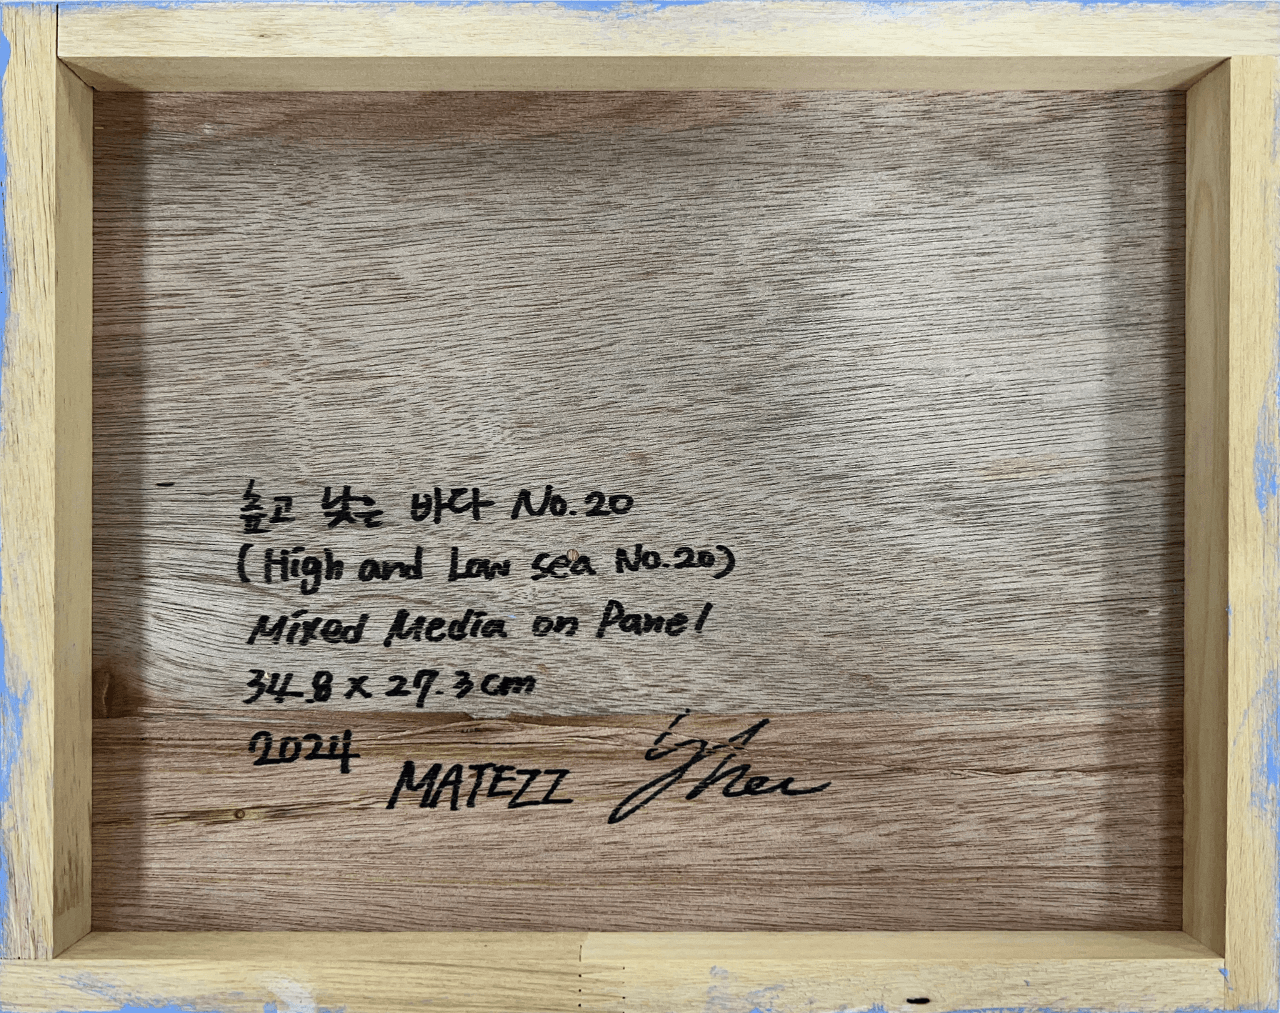 높고 낮은 바다 No.20
(High and Low sea No.20)
Mixed Media on Panel
34.8 x 27.3cm
2024
MATEZZ